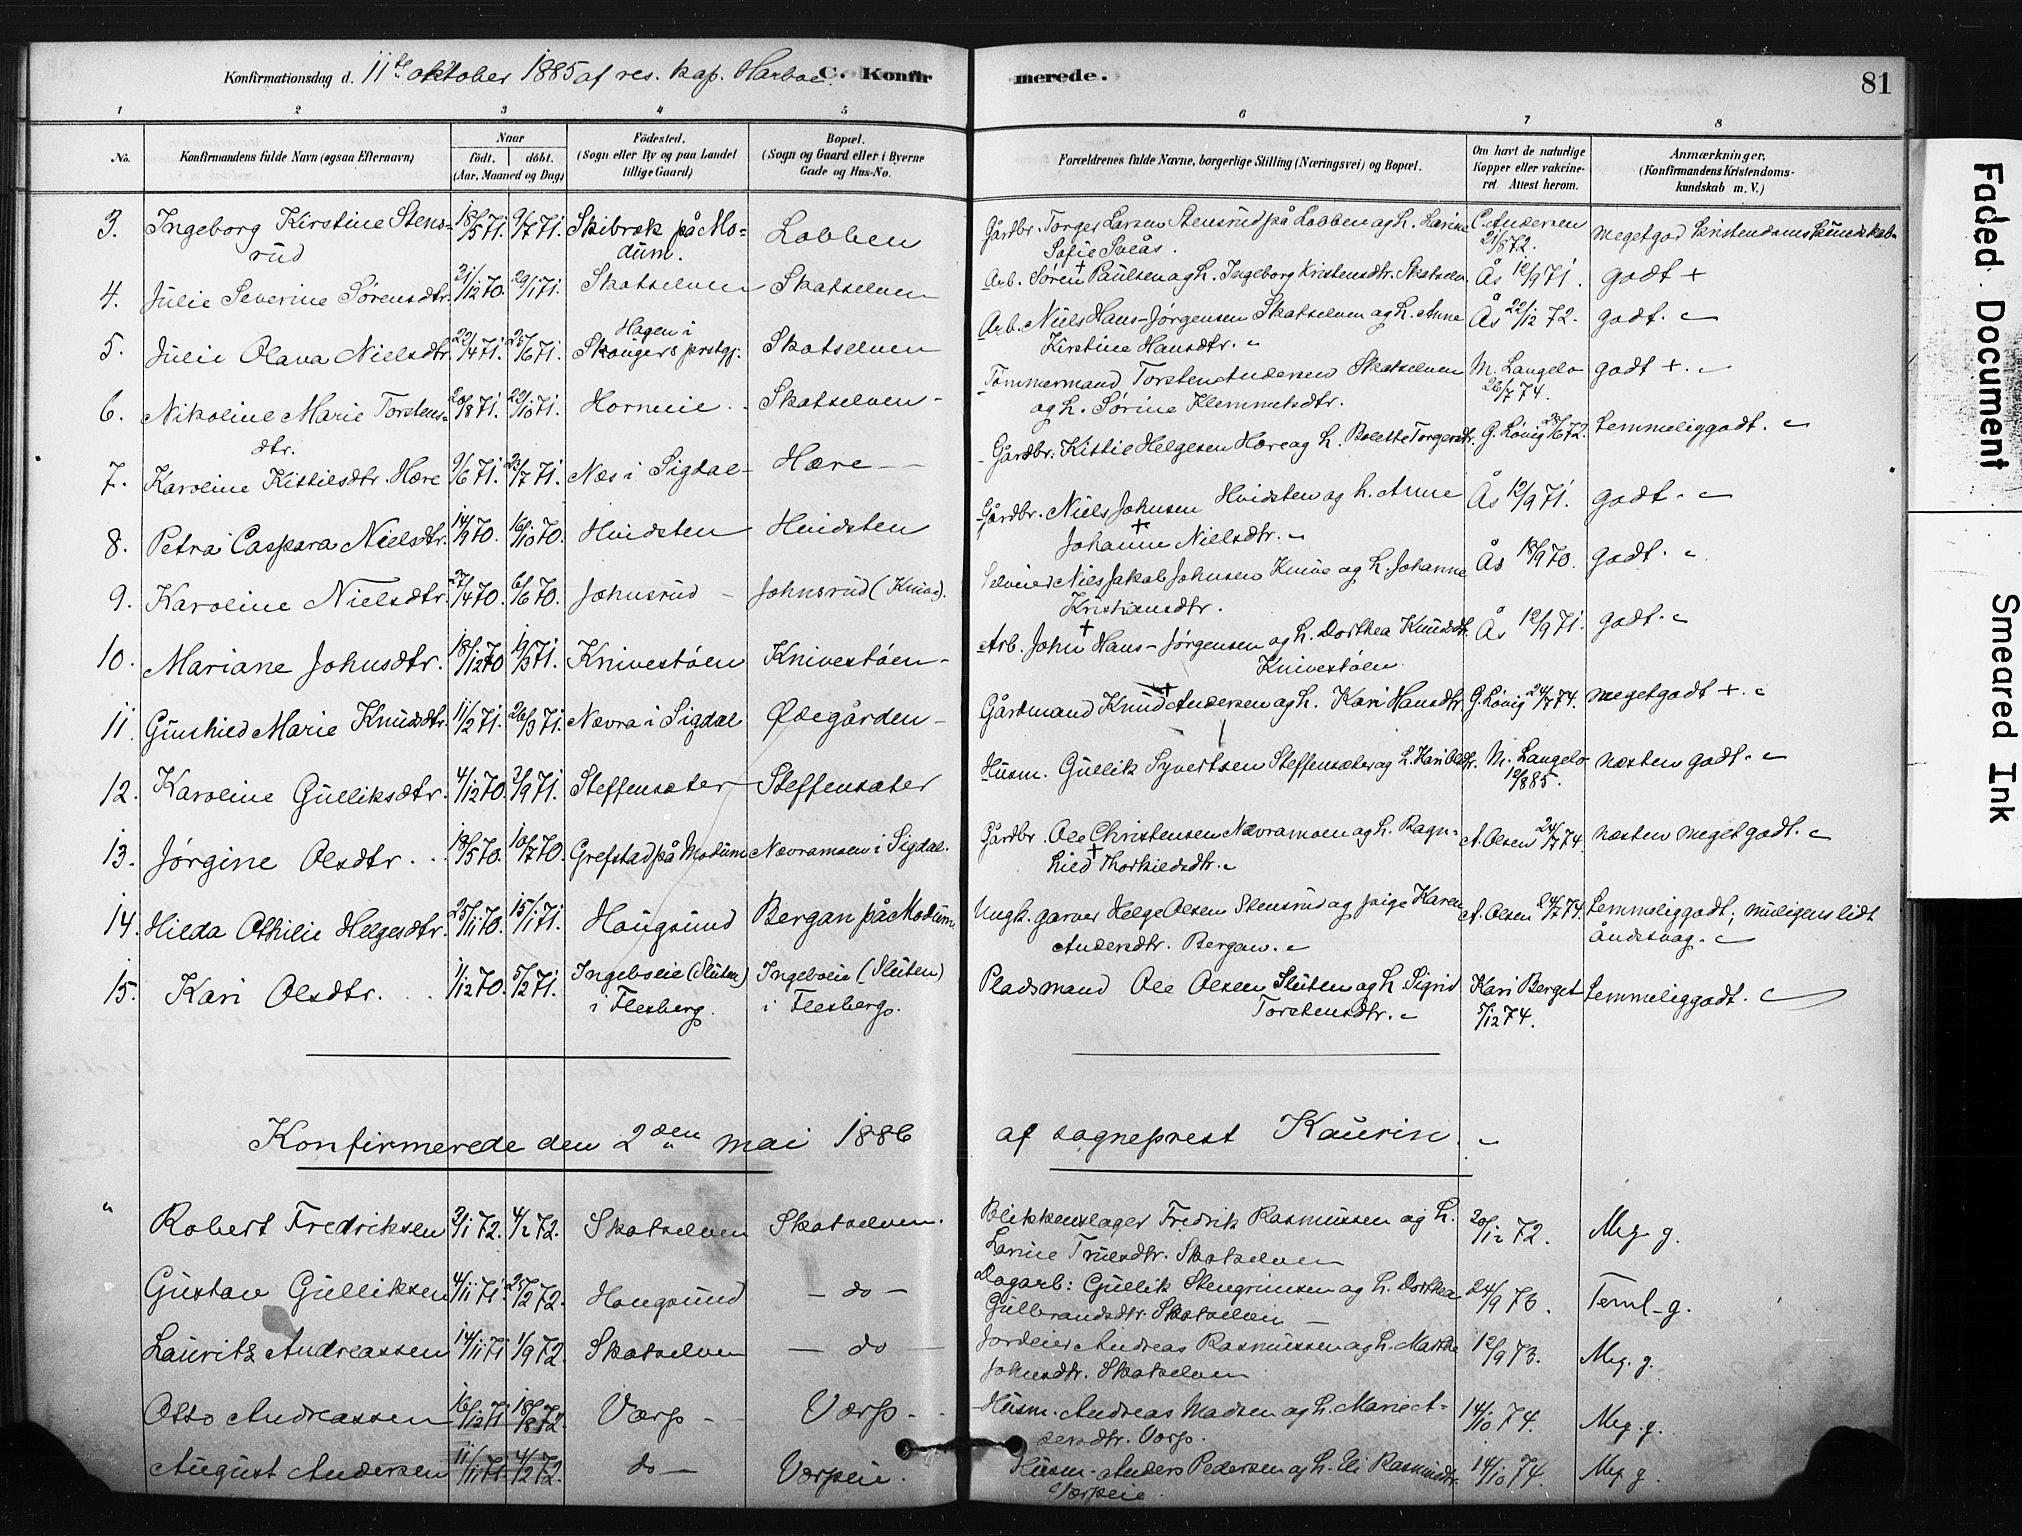 Konfirmationsdag d. 11te oktober 1885 af res. kap. Harboe. C. Konfir merede. 81
1 2 3 4 5 6 7 8
No. Konfirmandens fulde Navn (ogsaa Efternavn) Naar födt. döbt. (Aar, Maaned og Dag) Födested. (Sogn eller By og paa Landet tillige Gaard) Bopæl. (Sogn og Gaard eller i Byerne Gade og Hus-No. Forældrenes fulde Navne, borgerlige Stilling (Næringsvei) og Bopæl. Om havt de naturlige Kopper eller vakcineret. Attest herom. Anmærkninger. (Konfirmandens Kristendomskundskab m. V.)
3. Ingeborg Kirstine Stens- 18/5 71. 9/7 71. Skibræk på Mo- Lobben Gårdbr. Torger Larsen Stensrud på Lobben og h. Larine C. Andersen megetgod kristendomskundskab.
rud dum. Sofie Sveås. 21/8 72.
4. Julie Severine Sörensdtr. 31/12 70. 29/1 71. Skotselven Skotselven Arb. Sören + Paulsen og h. Ingeborg Kristensdtr. Skotselv. Ås 12/9 71. godt +
5. Julie Olava Nielsdtr. 22/4 71. 25/6 71. Hagen i Skougers prstgj. Skotselven Arb. Niels Hans-Jørgensen Skotselven og h. Anne Ås 22/12 72. godt.
Kirstine Hansdtr.
6. Nikoline Marie Torstens- 20/8 71. 22/10 71. Horneie Skotselven Tømmermand Torsten Andersen Skotselven M. Langelo godt +.
dtr. og h. Sörine Klemmetsdtr. 26/7 74.
7. Karoline Kittilsdtr Hære 9/6 71. 23/7 71. Næs i Sigdal Hære Gårdbr. Kittil Helgesen Hære og h. Bolette Torgersdtr. G. Lövig 72. temmeliggodt.
8. Petra Caspara Nielsdtr. 14/9 70. 16/10 70. Hvidsten Hvidsten Gårdbr. Niels Johnsen Hvidsten og h. Anne Ås 12/9 71. godt.
Johanne + Nielsdtr.
9. Karoline Nielsdtr. 27/4 70. 6/6 70. Johnsrud Johnsrud (Knive). Selveier Niels Jakob Johnsen Knive og h. Johanne Ås 18/9 70. godt.
Kristiansdtr.
10. Mariane Johnsdtr. 18/12 70 19/3 71. Knivestöen Knivestöen Arb. John + Hans-Jørgensen og h. Dorthea Knudsdtr. Ås 12/9 71. godt.
Knivestöen
11. Gunhild Marie Knudsdtr. 11/2 71. 26/3 71. Nævra i Sigdal Ødegården Gårdmand Knud + Andersen og h. Kari Hansdtr. G. Lövig 24/7 74. megetgodt +.
12. Karoline Gulliksdtr. 4/12 70. 2/9 71. Steffensæter Steffensæter Husm. Gullik Syvertsen Steffensæter og h. Kari Olsdtr. M. Langelo næsten godt.
12/8 85.
13. Jørgine Olsdtr. 18/5 70. 10/7 70. Grefstad på Modum Nævramoen i Sigdal. Gårdbr. Ole Christensen Nævramoen og h. Ragn- A. Olsen 24/7 74. næsten meget godt.
hild + Thorkildsdtr.
14. Hilda Othilie Helgesdtr. 25/11 70. 15/1 71. Hougsund Bergan på Modum. Ungk. garver Helge Olsen Stensrud og pige Karen A. Olsen 24/7 74. temmeliggodt; muligens lidt
Andersdtr. Bergan. åndssvag.
15. Kari Olsdtr. 1/12 70. 5/2 71. Ingebseie (Sluten) Ingebseie (Sluten) Pladsmand Ole Olsen Sluten og h. Sigrid Kari Berget temmeliggodt.
i Flesberg. i Flesberg. Torstensdtr. 5/12 74.
Konfirmerede den 2den mai 1886 af sogneprest Kaurin.
" Robert Fredriksen 2/1 72. 4/2 72. Skotselven Skotselven. Blikkenslager Fredrik Rasmussen og h. 20/12 72. Meg. g.
Larine Truelsdtr. Skotselven
Gustav Gulliksen 4/11 71. 25/2 72. Hougsund — do — Dagarb: Gullik Stengrimsen og h. Dorthea 24/9 73. Teml. g.
Gulbrandsdtr. Skotselven
Lauritz Andreassen 14/11 71 1/9 72. Skotselven — do — Jordeier Andreas Rasmussen og h. Marthe 12/9 73. Meg. g.
Johnsdtr. Skotselven
Otto Andreassen 16/12 71 18/8 72. Vorp Vorp Husm. Andreas Madsen og h. Marie A- 14/10 74. Meg. g.
dersdtr. Vorp.
August Andersen 11/11 71 4/2 72. do — Vorpeie. Husm. Anders Pedersen og h. Eli Rasmusdtr. 14/10 74. Meg. g.
Vorpeie
Faded Document
Smeared Ink